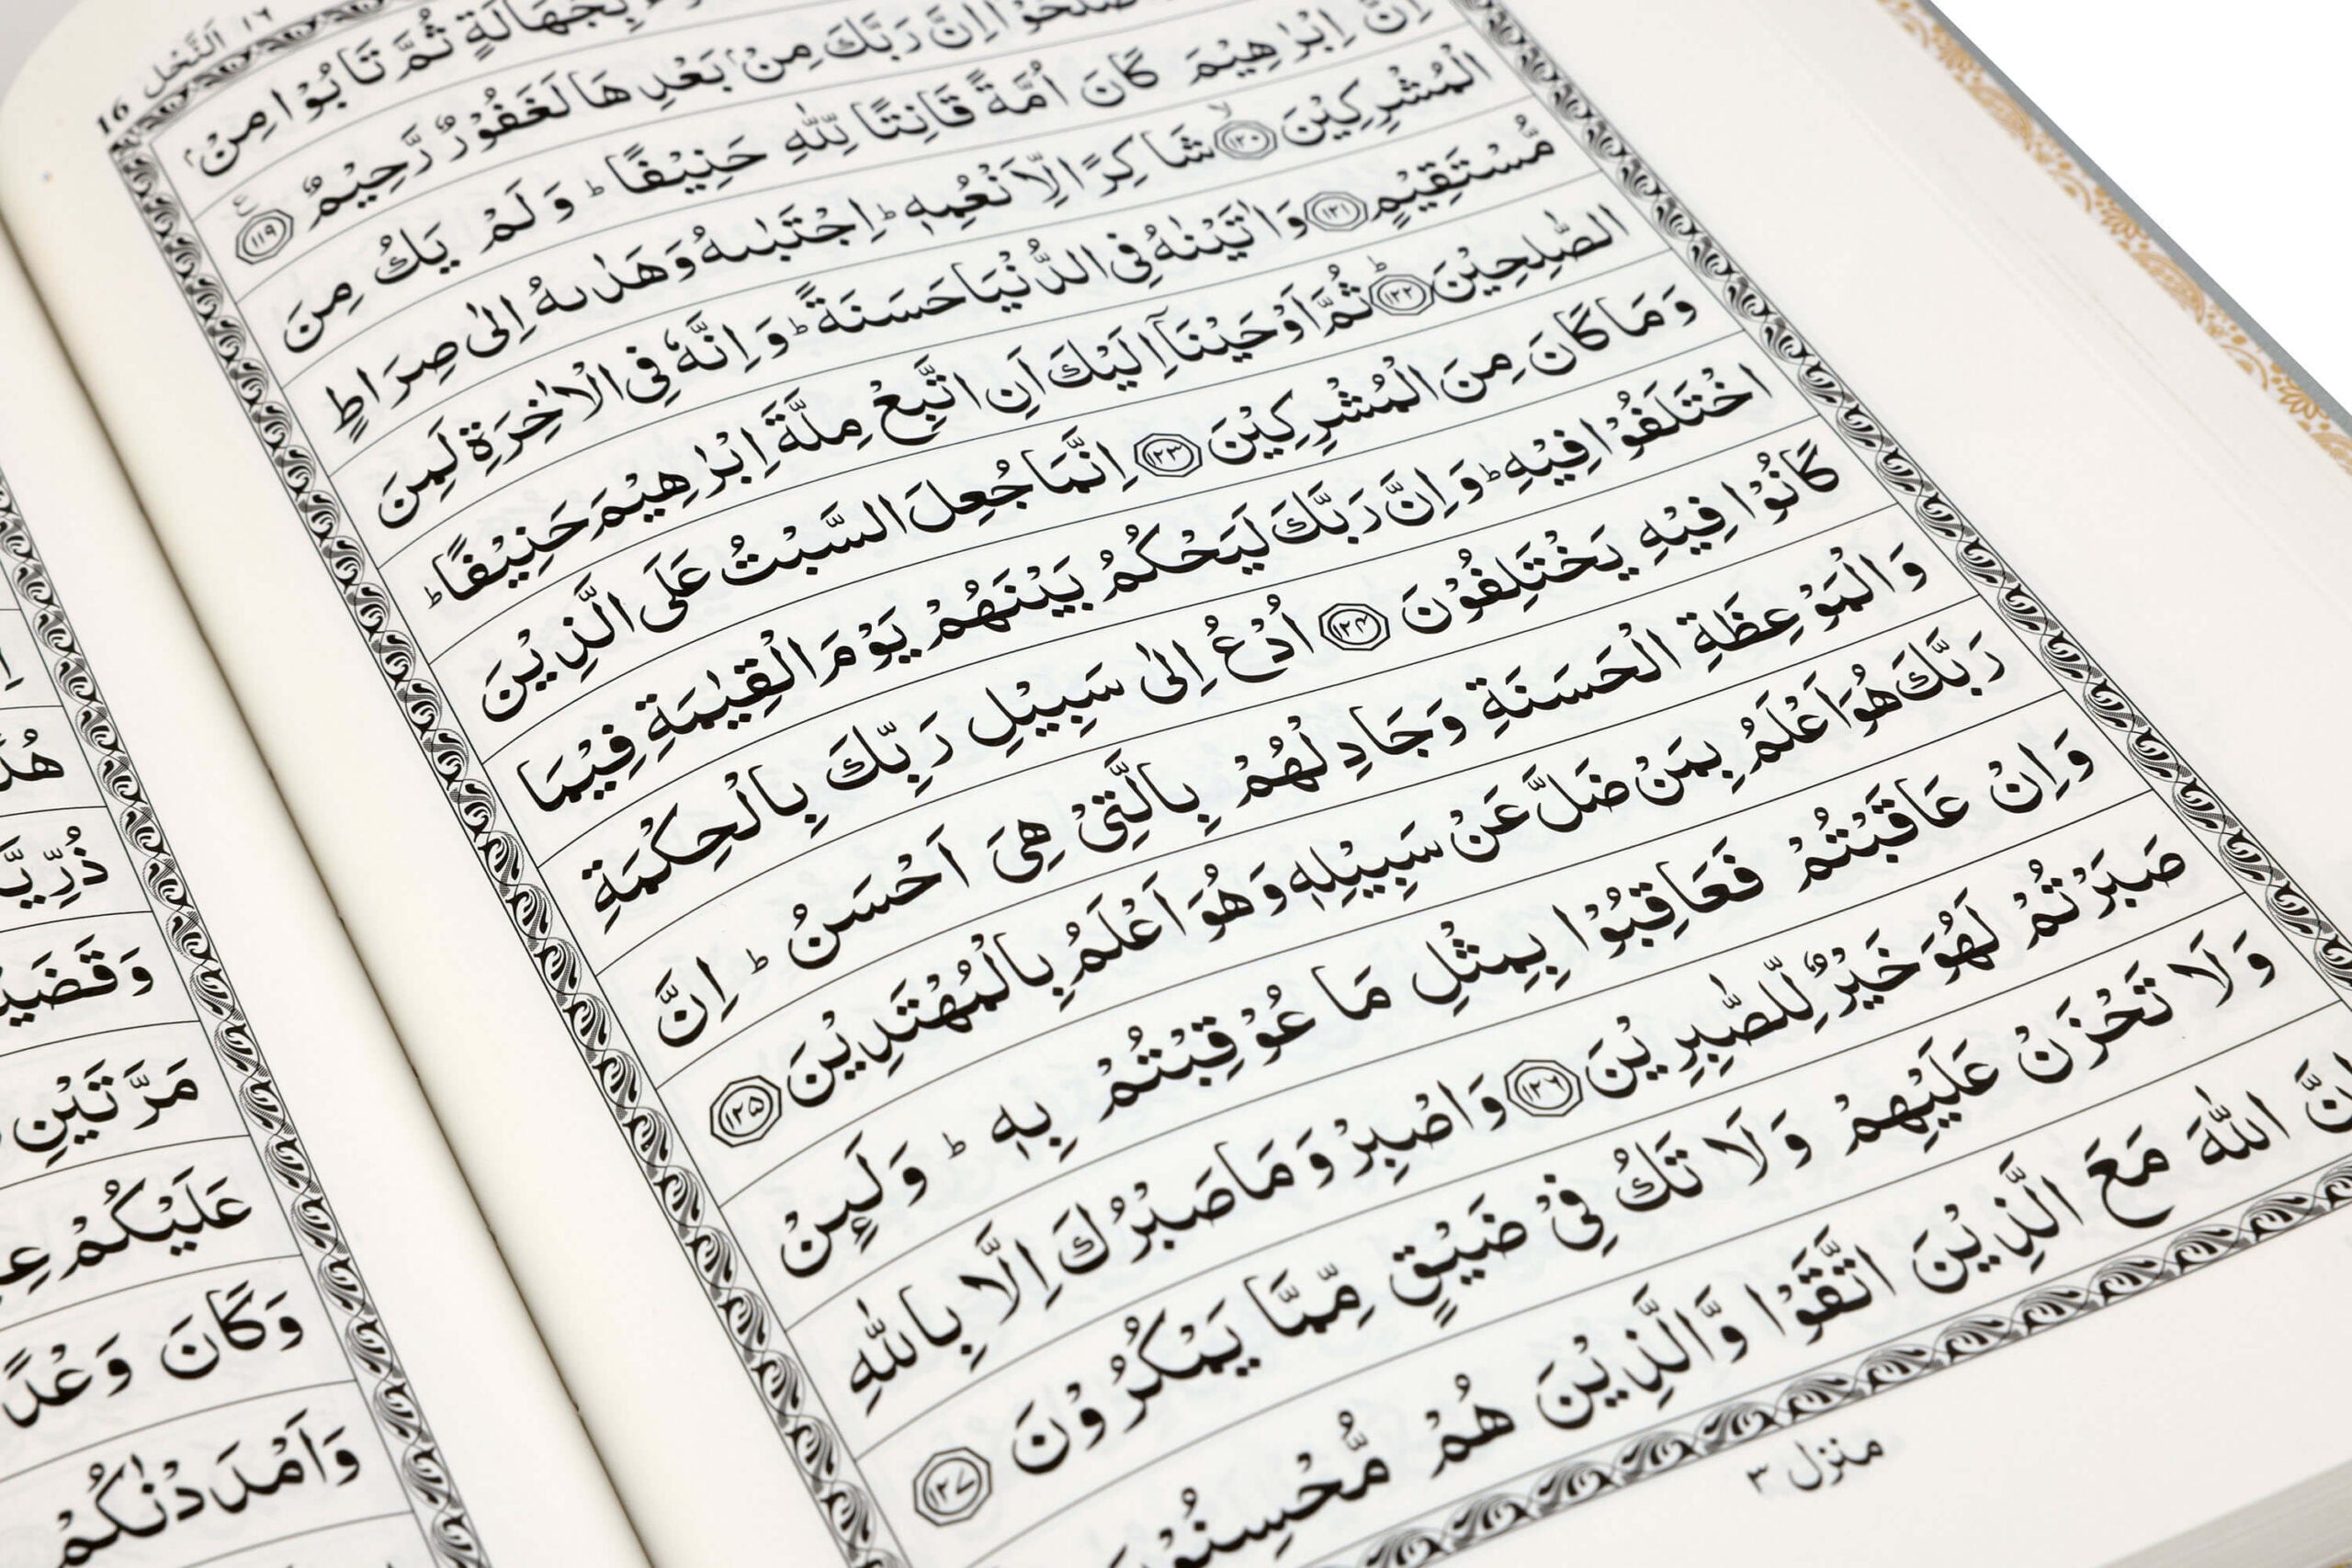 النَّحْل ١٦
16
بِجَهَالَةٍ ثُمَّ تَابُوْا مِنْۢ
اِنَّ رَبَّكَ مِنْۢ بَعْدِهَا لَغَفُوْرٌ رَّحِيْمٌ ﴿١١٩﴾ۧ
اِنَّ اِبْرٰهِيْمَ كَانَ اُمَّةً قَانِتًا لِّلّٰهِ حَنِيْفًا ؕ وَلَمْ يَكُ مِنَ
الْمُشْرِكِيْنَ ﴿١٢٠﴾ۙ شَاكِرًا لِّاَنْعُمِهٖ ؕ اِجْتَبٰىهُ وَهَدٰىهُ اِلٰى صِرَاطٍ
مُّسْتَقِيْمٍ ﴿١٢١﴾ وَاٰتَيْنٰهُ فِى الدُّنْيَا حَسَنَةً ؕ وَاِنَّهٗ فِى الْاٰخِرَةِ لَمِنَ
الصّٰلِحِيْنَ ﴿١٢٢﴾ؕ ثُمَّ اَوْحَيْنَاۤ اِلَيْكَ اَنِ اتَّبِعْ مِلَّةَ اِبْرٰهِيْمَ حَنِيْفًا ؕ
وَمَا كَانَ مِنَ الْمُشْرِكِيْنَ ﴿١٢٣﴾ اِنَّمَا جُعِلَ السَّبْتُ عَلَى الَّذِيْنَ
اخْتَلَفُوْا فِيْهِ ؕ وَاِنَّ رَبَّكَ لَيَحْكُمُ بَيْنَهُمْ يَوْمَ الْقِيٰمَةِ فِيْمَا
كَانُوْا فِيْهِ يَخْتَلِفُوْنَ ﴿١٢٤﴾ اُدْعُ اِلٰى سَبِيْلِ رَبِّكَ بِالْحِكْمَةِ
وَالْمَوْعِظَةِ الْحَسَنَةِ وَجَادِلْهُمْ بِالَّتِىْ هِىَ اَحْسَنُ ؕ اِنَّ
رَبَّكَ هُوَ اَعْلَمُ بِمَنْ ضَلَّ عَنْ سَبِيْلِهٖ وَهُوَ اَعْلَمُ بِالْمُهْتَدِيْنَ ﴿١٢٥﴾
وَاِنْ عَاقَبْتُمْ فَعَاقِبُوْا بِمِثْلِ مَا عُوْقِبْتُمْ بِهٖ ؕ وَلَىِٕنْ
صَبَرْتُمْ لَهُوَ خَيْرٌ لِّلصّٰبِرِيْنَ ﴿١٢٦﴾ وَاصْبِرْ وَمَا صَبْرُكَ اِلَّا بِاللّٰهِ
وَلَا تَحْزَنْ عَلَيْهِمْ وَلَا تَكُ فِىْ ضَيْقٍ مِّمَّا يَمْكُرُوْنَ ﴿١٢٧﴾
اِنَّ اللّٰهَ مَعَ الَّذِيْنَ اتَّقَوْا وَّالَّذِيْنَ هُمْ مُّحْسِنُوْنَ
منزل ٣
وَقَضَيْ
مَرَّتَيْنِ
عَلَيْكُمْ
وَكَانَ وَعْدًا
وَاَمْدَدْنٰكُمْ